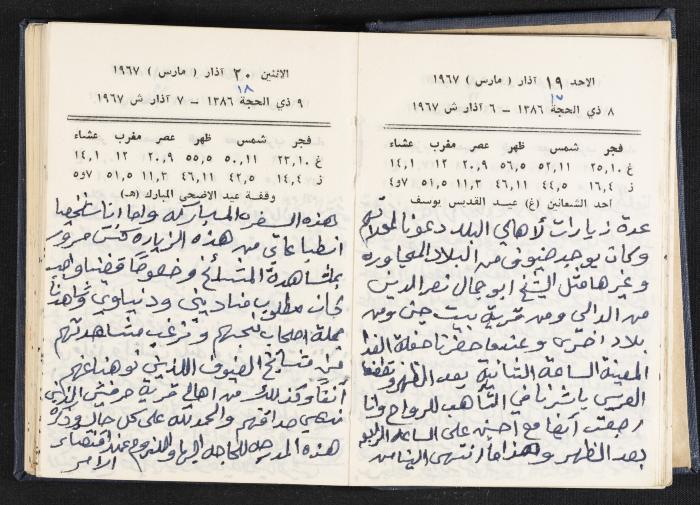 الاحد ١٩ آذار ( مارس ) ١٩٦٧
١٧
٨ ذي الحجة ١٣٨٦ – ٦ آذار ش ١٩٦٧
فجر شمس ظهر عصر مغرب عشاء
غ ٢٥,١٠ ٥٢,١١ ٥٦,٥ ٢٠,٩ ١٢ ١٤,١
ز ١٦,٤ ٤٤,٥ ٤٦,١١ ١١,٣ ٥١,٥ ٧و٤
احد الشعانين (غ) عيد القديس يوسف
عدة زيارات لأهالي البلد دعونا لمحلاتهم
وكان يوجد ضيوف من البلاد المجاوره
وغيرها مثل الشيخ ابو جمال نصر الدين
من الدالي ومن قرية بيت جن ومن
بلاد اخرى وعندها حضرنا حفلة الغدا
المعينة الساعة الثانية بعد الظهر و
العرس باشرنا في التأهب للرواح وانا
رجعت آنها مع احسن على الساعه الرابعه
بعد الظهر وهذا ما انتهى الينا من
الاثنين ٢٠ آذار ( مارس ) ١٩٦٧
١٨
٩ ذي الحجة ١٣٨٦ – ٧ آذار ش ١٩٦٧
فجر شمس ظهر عصر مغرب عشاء
غ ٢٣,١٠ ٥٠,١١ ٥٥,٥ ٢٠,٩ ١٢ ١٤,١
ز ١٤,٤ ٤٢,٥ ٤٦,١١ ١١,٣ ٥١,٥ ٧و٥
وقفة عيد الاضحى المبارك (هـ)
هذه السفره المباركه واما انا شخصيا
انطباعاتي من هذه الزياره كنت مسرور
بمشاهدة المشايخ وخصوصا قضينا واجب
كان مطلوب منا ديني ودنياوي شاهدنا
جملة اصحاب نحبهم ونرغب مشاهدتهم
من مشايخ الضيوف اللذين نوهنا عنهم
آنفا وكذلك من اهالي قرية حرفيش الذين
صداقتهم والحمد لله على كل حال وذكرة
هذه المدرجه للحاجه اليها واللزوم عند اقتضاء
الأمر